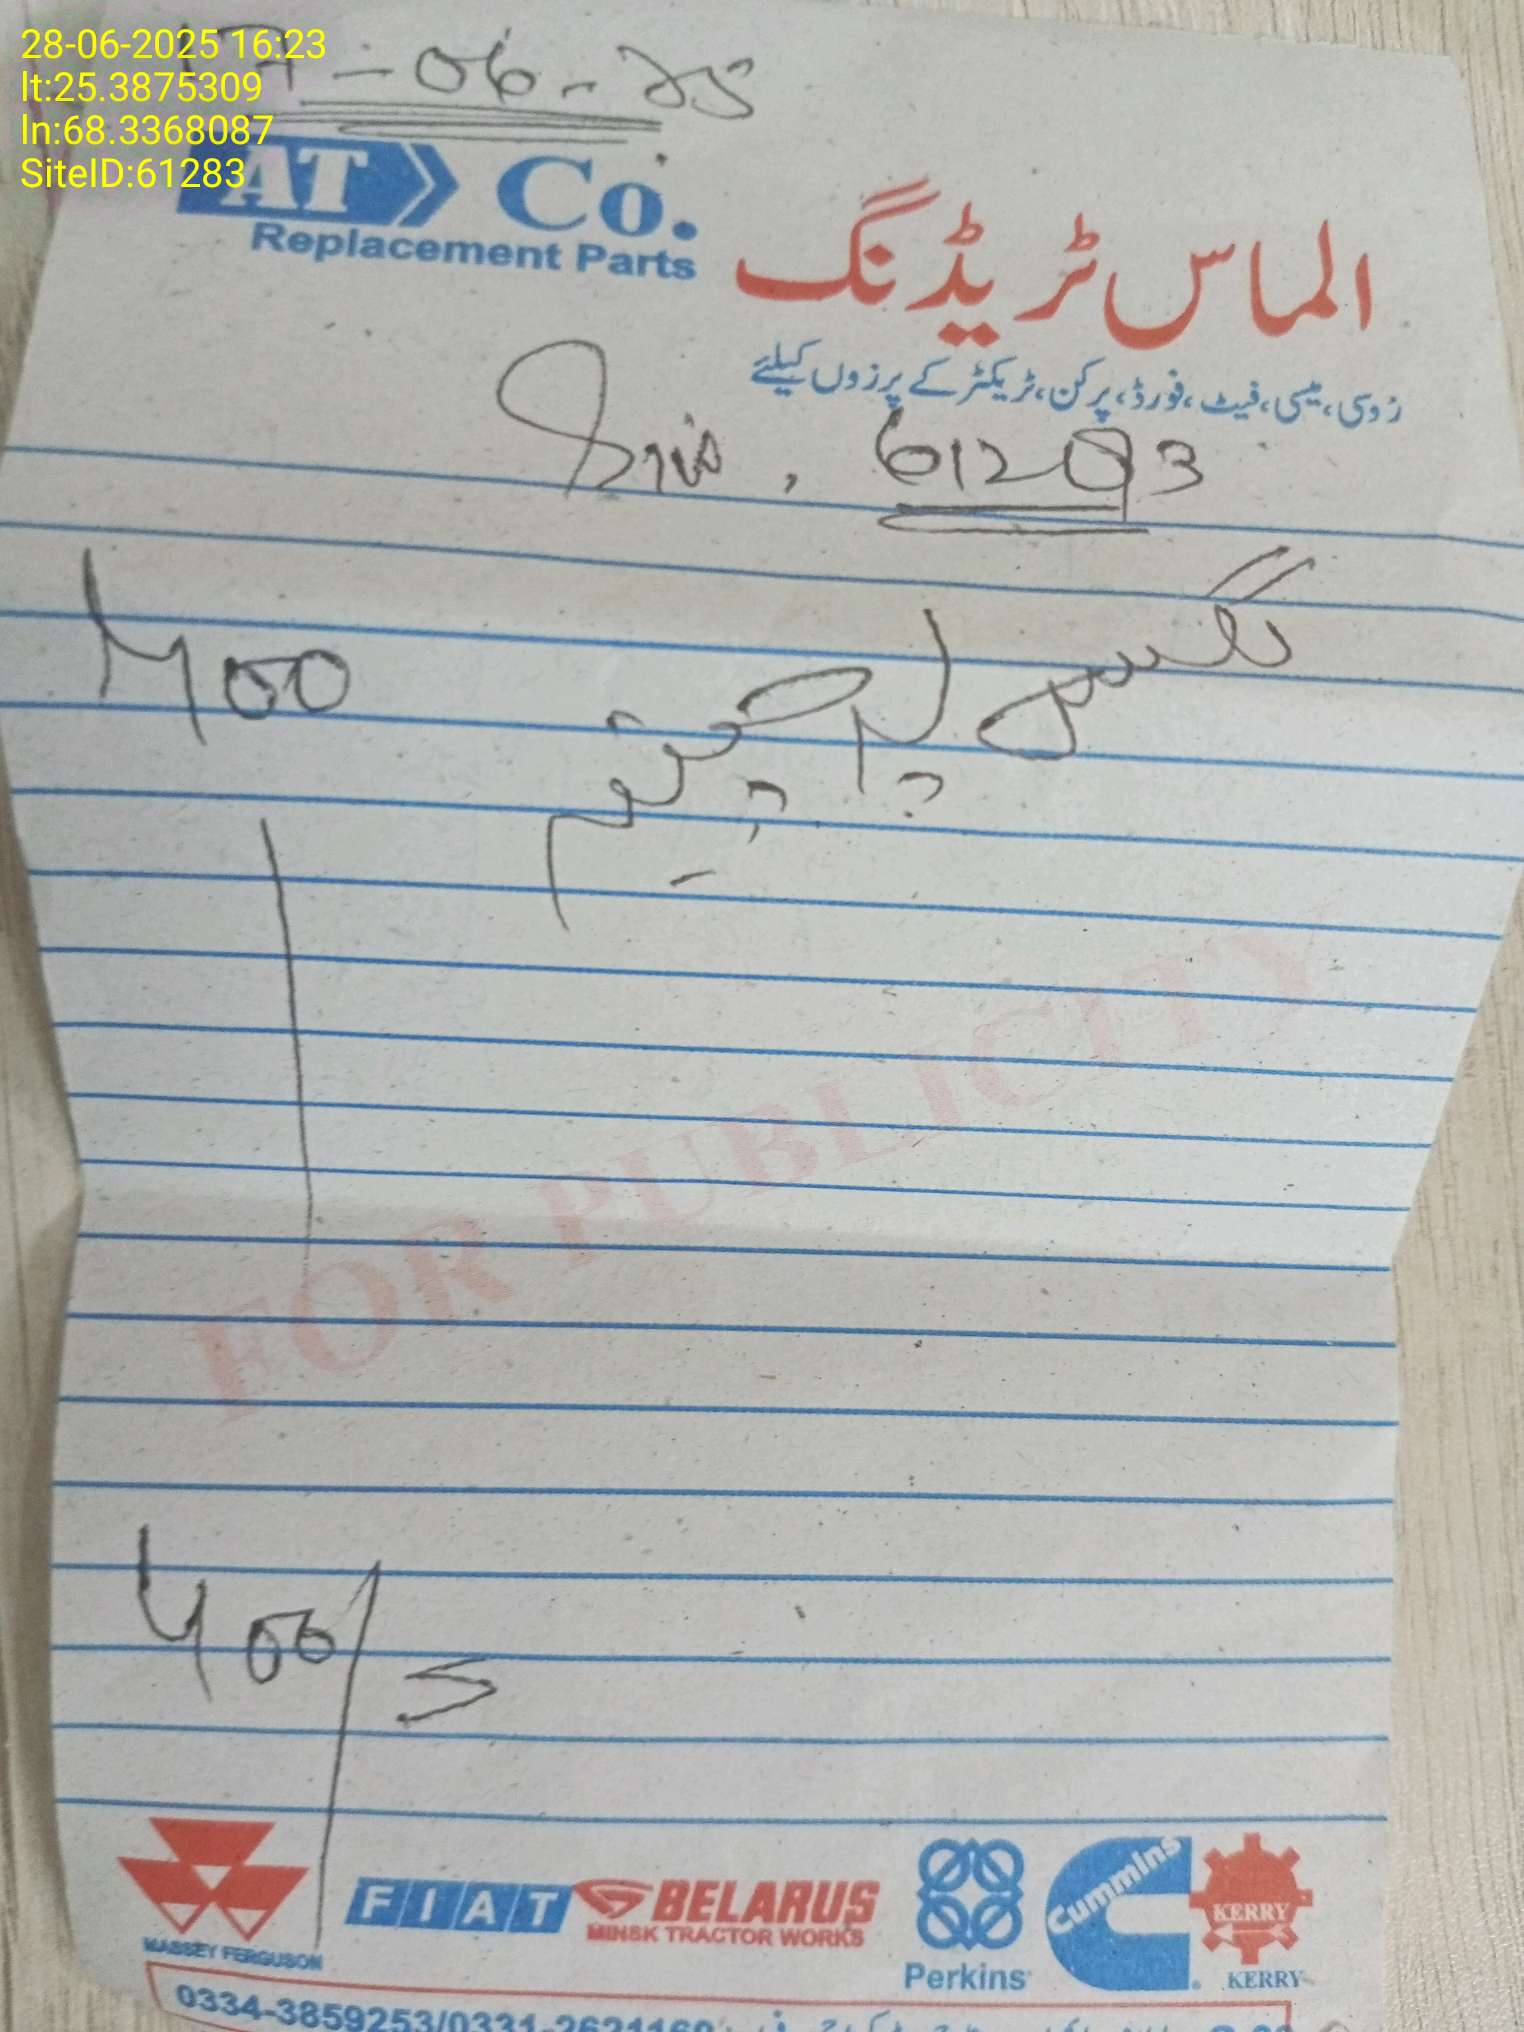 28-06-2025 16:23
lt:25.3875309
ln:68.3368087
SiteID:61283
-06-25
AT Co.
Replacement Parts
الماس ٹریڈنگ
روسی، میسی، فیٹ، فورڈ، پرکن، ٹریکٹر کے پرزوں کیلئے
61283
400
FOR PUBLICITY
400/
MASSEY FERGUSON
FIAT
BELARUS
MINSK TRACTOR WORKS
Perkins
Cummins
KERRY
KERRY
0334-3859253/0331-2621160